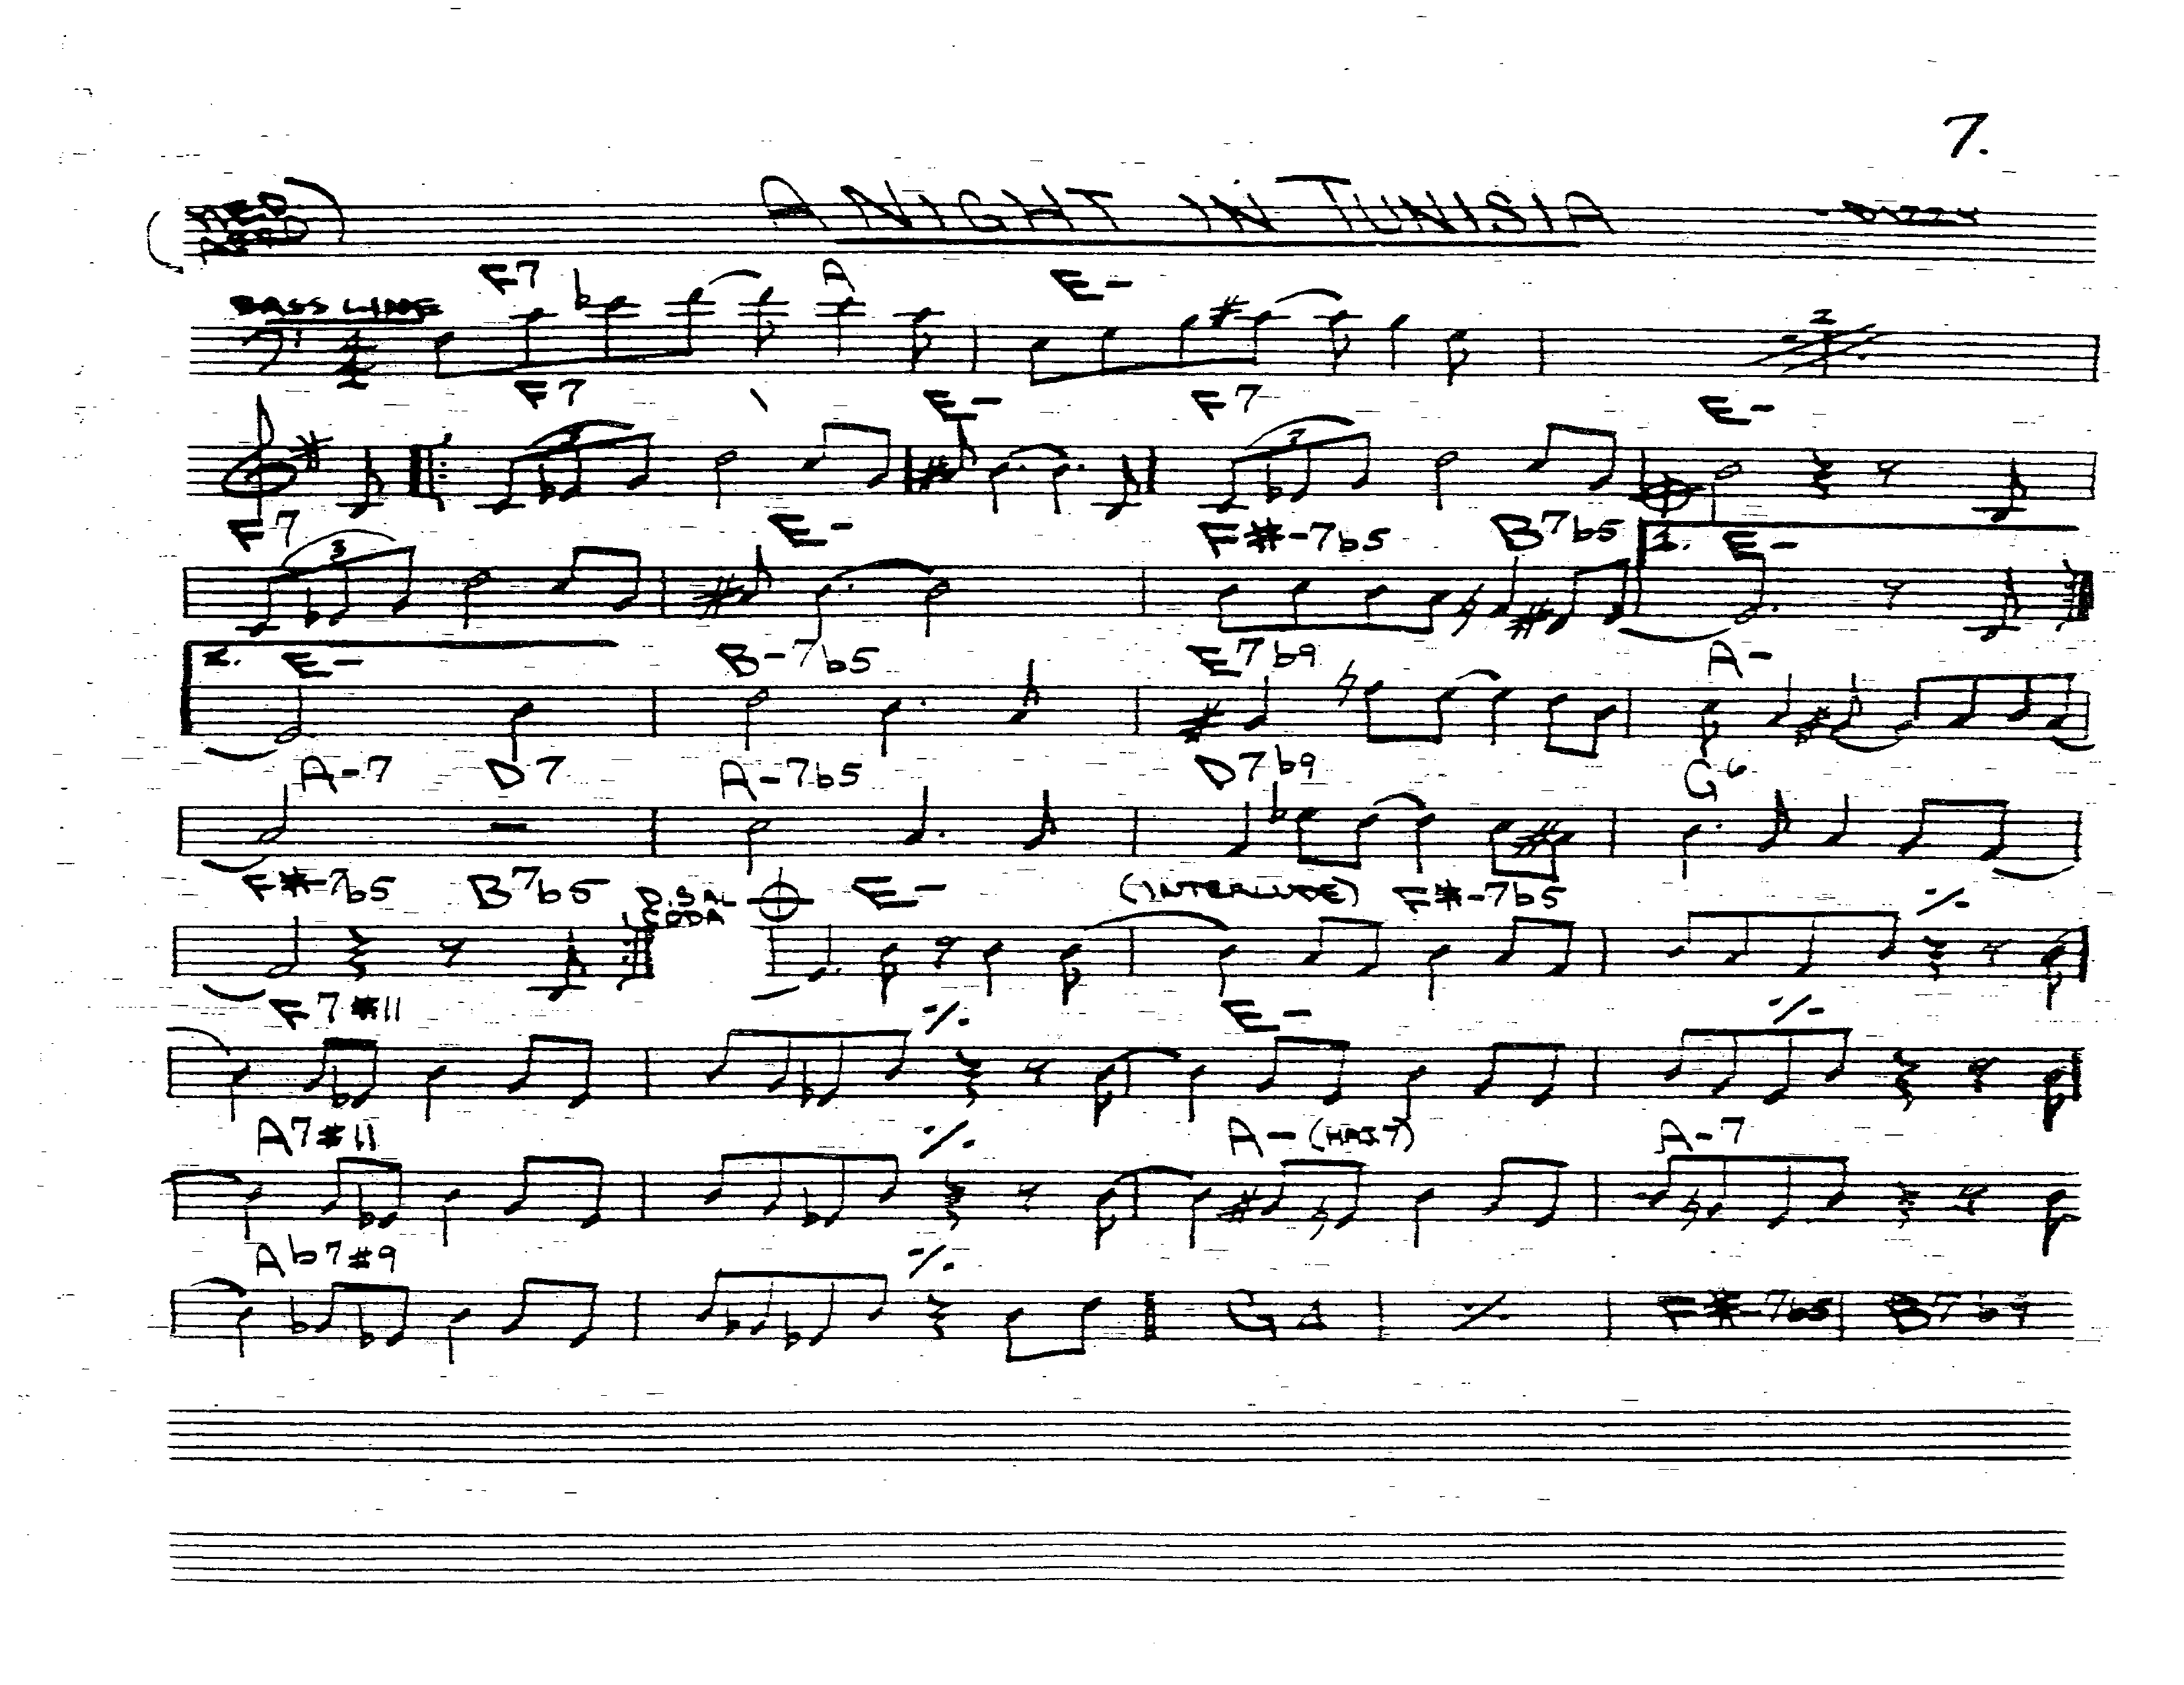 7.
A NIGHT IN TUNISIA - DIZZY
(MED
BASS LINE F7 A E-
2
F7 E- F7 E-
3 3
F7 E- F#-7b5 B7b5 1. E-
3
2. E- B-7b5 E7b9 A-
A-7 D7 A-7b5 D7b9 G6
F#-7b5 B7b5 D.S. AL CODA E- (INTERLUDE) F#-7b5
F7#11 E-
A7#11 A-(MAJ7) A-7
Ab7#9
G F#-7b5 B7b9